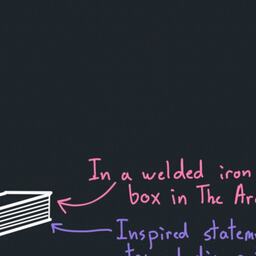 In a welded iron
box in The Ar
Inspired statem